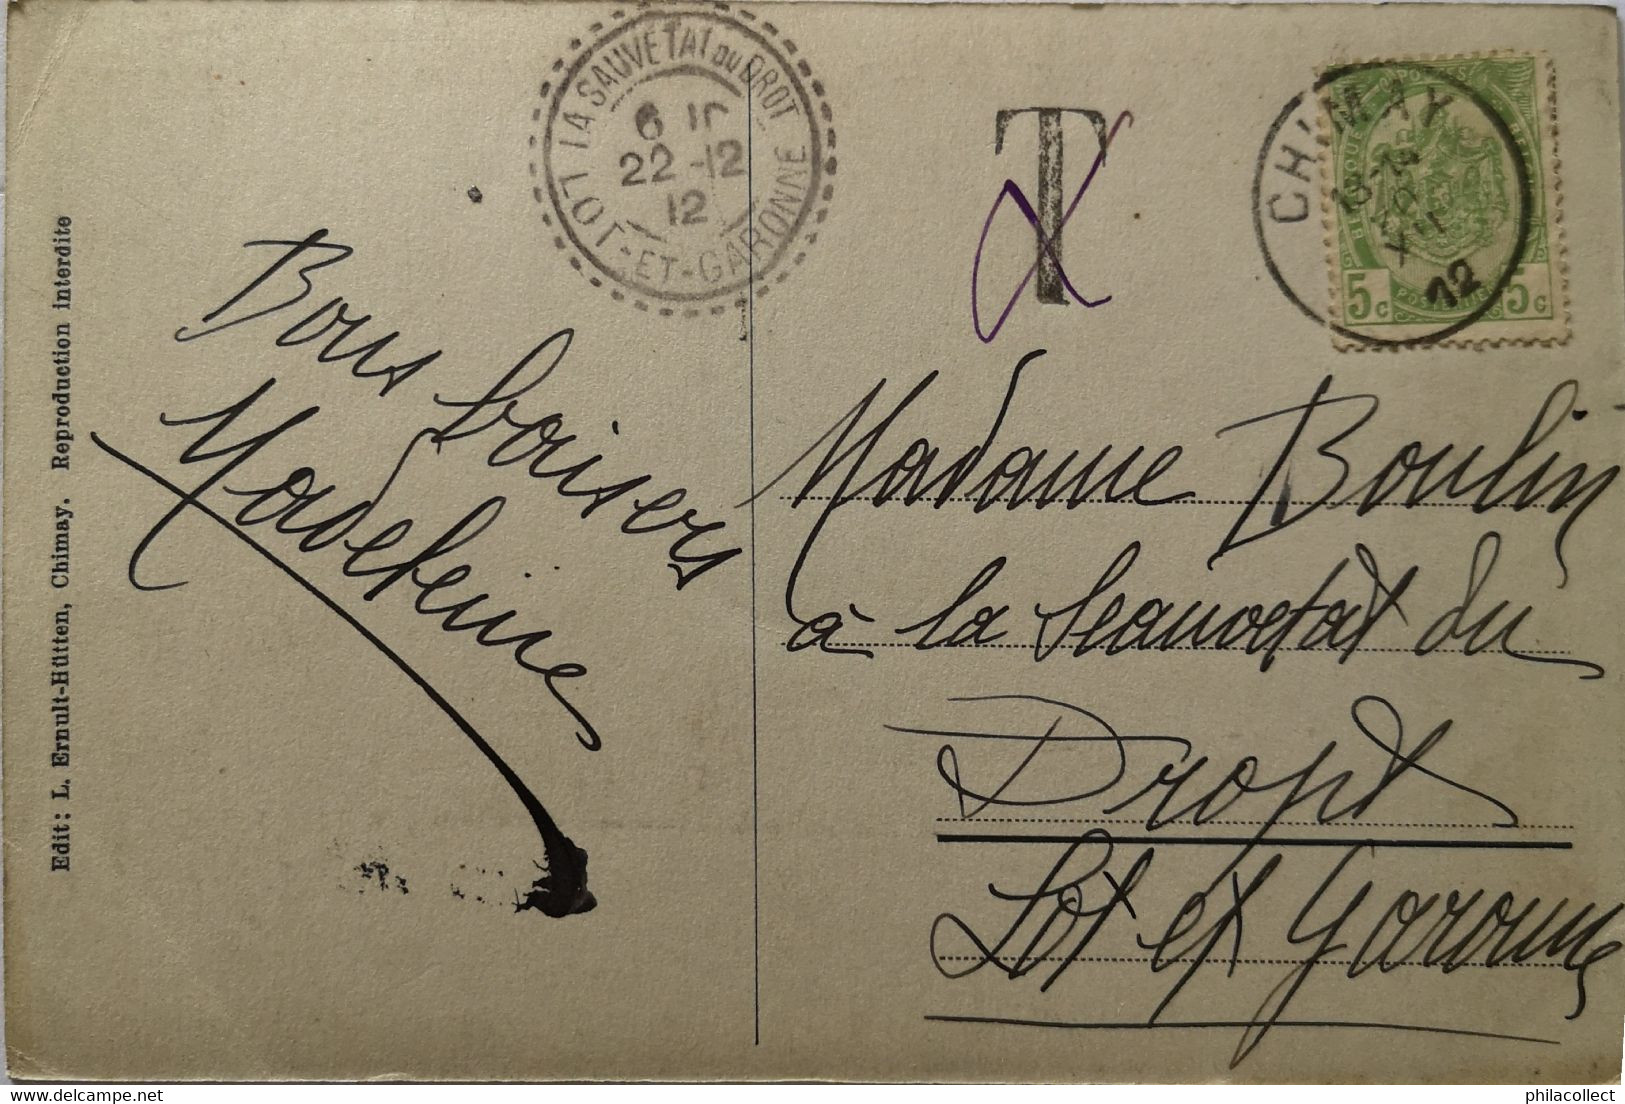 Edit: L. Ernult-Hütten, Chimay. Reproduction interdite
LA SAUVETAT DU DROT
22-12
12
LOT-ET-GARONNE
T
CHIMAY
12
POSTES
5c 5c
Bons baisers
Madeleine
Madame Boulin
à la Seauvetat du
Dropt
Lot et Garonne
www.delcampe.net
philacollect